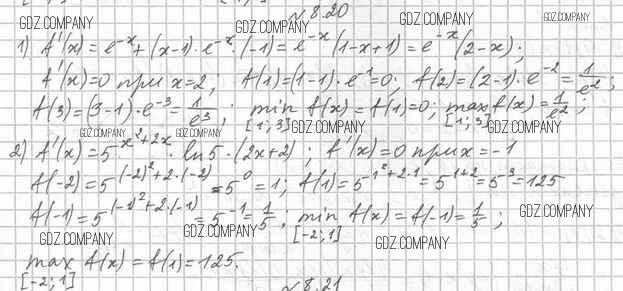 №8.20
GDZ.COMPANY GDZ.COMPANY GDZ.COMPANY GDZ.COMPANY
1) f'(x)=e^{-x}+(x-1)·e^{-x}·(-1)=e^{-x}(1-x+1)=e^{-x}(2-x);
f'(x)=0 при x=2; f(1)=(1-1)·e^{-1}=0; f(2)=(2-1)·e^{-2}=1/e^2;
f(3)=(3-1)·e^{-3}=1/e^3; min f(x)=f(1)=0; max f(x)=1/e^2;
[1;3] [1;3]
GDZ.COMPANY GDZ.COMPANY GDZ.COMPANY GDZ.COMPANY
2) f'(x)=5^{x^2+2x}·ln5·(2x+2); f'(x)=0 при x=-1
f(-2)=5^{(-2)^2+2·(-2)}=5^0=1; f(1)=5^{1^2+2·1}=5^{1+2}=5^3=125
f(-1)=5^{(-1)^2+2·(-1)}=5^{-1}=1/5; min f(x)=f(-1)=1/5;
[-2;1]
GDZ.COMPANY GDZ.COMPANY GDZ.COMPANY GDZ.COMPANY
max f(x)=f(1)=125.
[-2;1]
№8.21